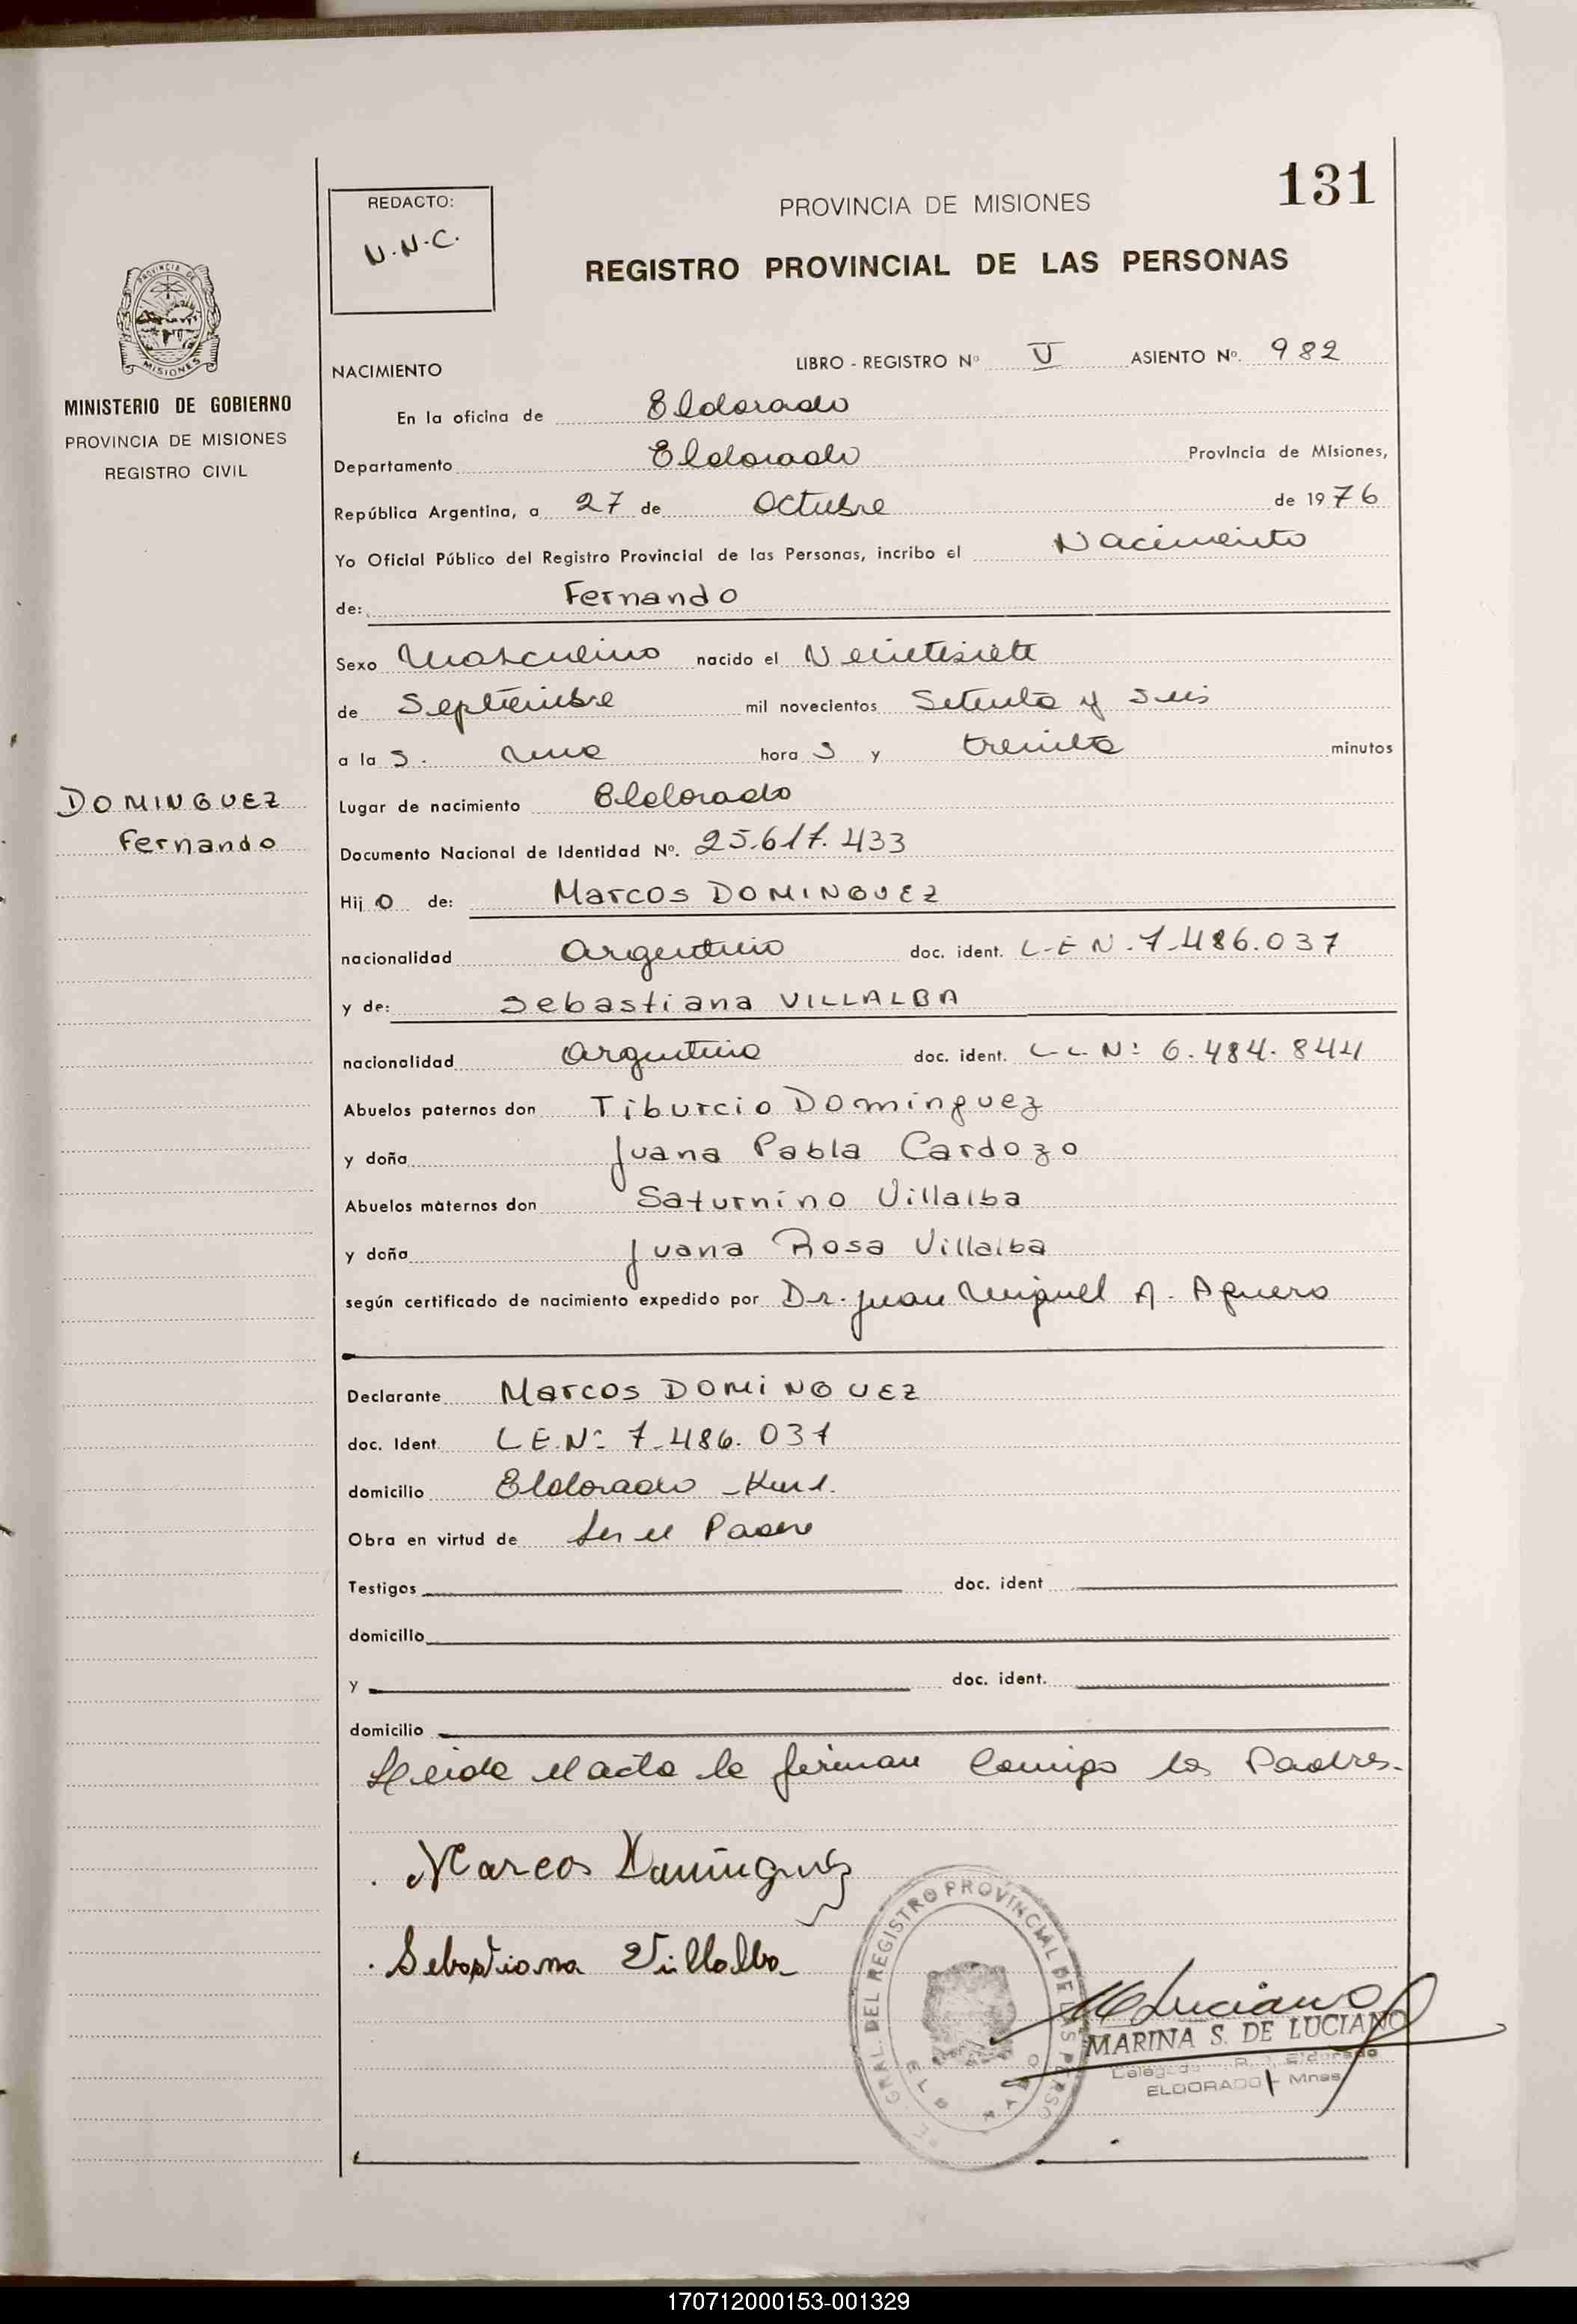 131
REDACTO:
N.N.C.
PROVINCIA DE MISIONES
REGISTRO PROVINCIAL DE LAS PERSONAS
PROVINCIA DE
MISIONES
MINISTERIO DE GOBIERNO
PROVINCIA DE MISIONES
REGISTRO CIVIL
DOMINGUEZ
Fernando
NACIMIENTO LIBRO - REGISTRO Nº V ASIENTO Nº. 982
En la oficina de Eldorado
Departamento Eldorado Provincia de Misiones,
República Argentina, a 27 de Octubre de 1976
Yo Oficial Público del Registro Provincial de las Personas, incribo el Nacimiento
de: Fernando
Sexo Masculino nacido el Veintisiete
de Septiembre mil novecientos Setenta y Seis
a la S. una hora S y treinta minutos
Lugar de nacimiento Eldorado
Documento Nacional de Identidad Nº. 25.617.433
Hij o de: Marcos DOMINGUEZ
nacionalidad Argentino doc. ident. L-E N-7.486.037
y de: Sebastiana VILLALBA
nacionalidad Argentina doc. ident. L-C Nº 6.484.844
Abuelos paternos don Tiburcio Dominguez
y doña Juana Pabla Cardozo
Abuelos maternos don Saturnino Villalba
y doña Juana Rosa Villalba
según certificado de nacimiento expedido por Dr. Juan Miguel A. Aguero
Declarante Marcos DOMINGUEZ
doc. Ident. L E.Nº 7.486.037
domicilio Eldorado - Km 1.
Obra en virtud de Ser el Padre
Testigos doc. ident
domicilio
y doc. ident.
domicilio
Leida el acta la firman Conmigo los Padres.
Marcos Dominguez
Sebastiana Villalba
GRAL. DEL REGISTRO PROVINCIAL DE LAS PERSO
M Luciano
MARINA S. DE LUCIANO
Eldorado
ELDORADO - Mnes
170712000153-001329